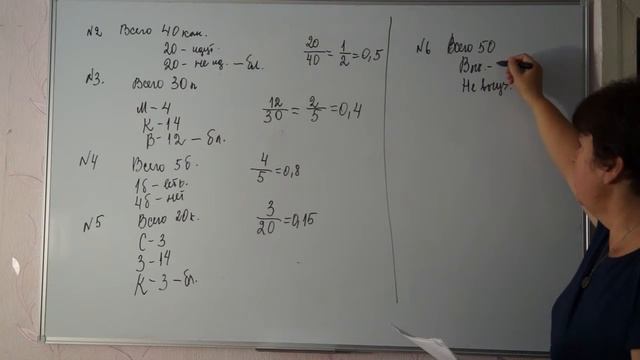 №2 Всего 40 кан.
20 - идёт
20 - не ид. - бл.
20/40 = 1/2 = 0,5
№3.
Всего 30 п
М - 4
К - 14
В - 12 - бл.
12/30 = 2/5 = 0,4
№4 Всего 5б.
1б - есть
4б - нет
4/5 = 0,8
№5 Всего 20к.
С - 3
З - 14
К - 3 - бл.
3/20 = 0,15
№6 Всего 50
Вып. -
Не выуч.